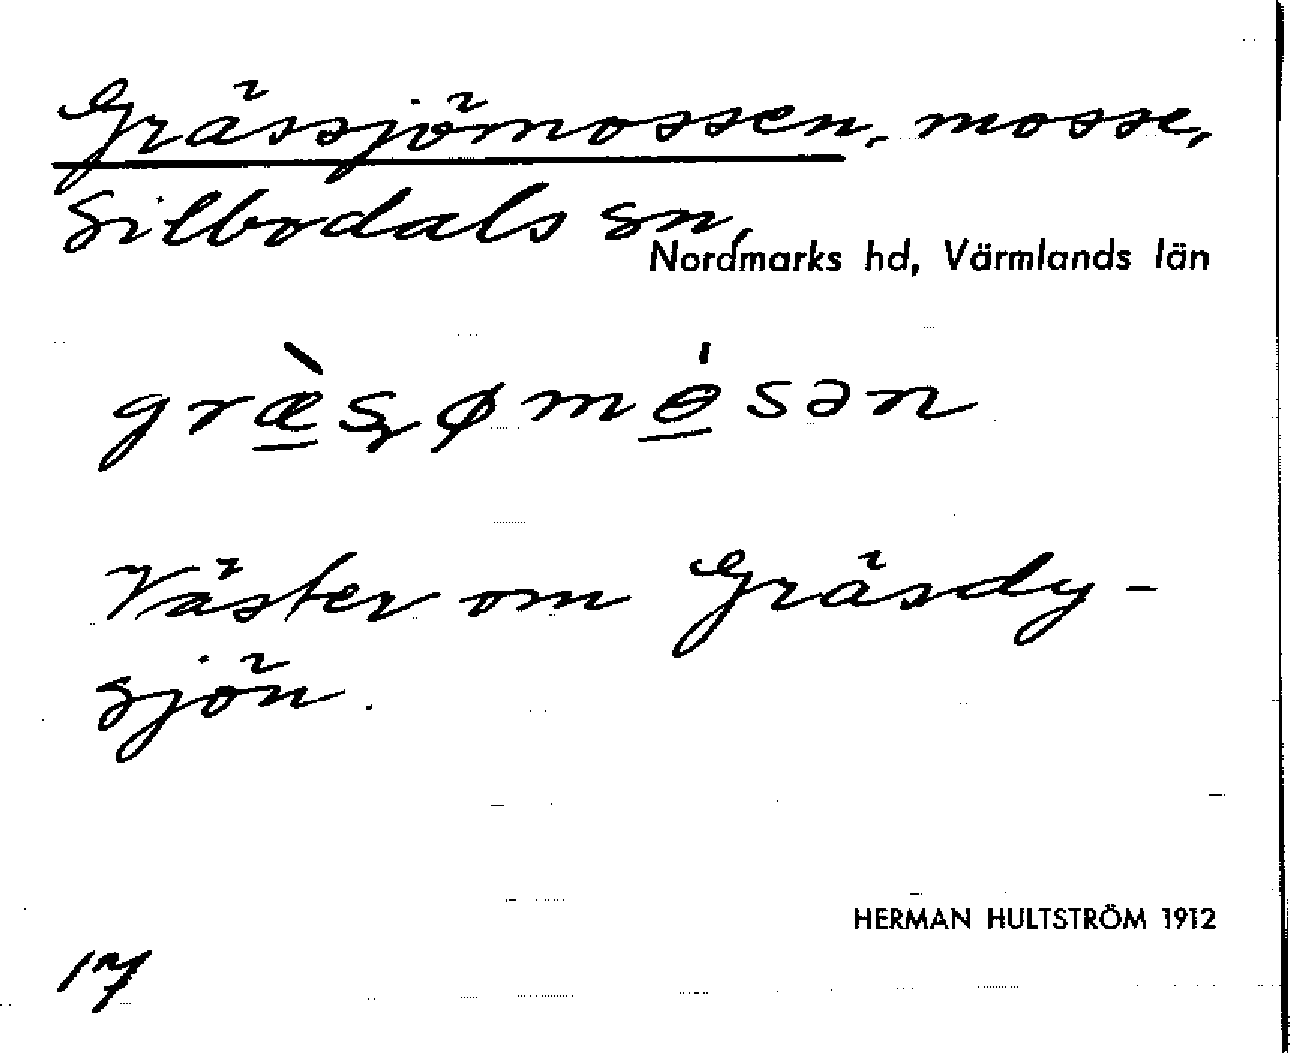 Grässjömossen, mosse,
Silbodals sn,
Nordmarks hd, Värmlands län
græ̲̀ʂømɵ̲́sən
Väster om Gräsdy-
sjön.
HERMAN HULTSTRÖM 1912
17